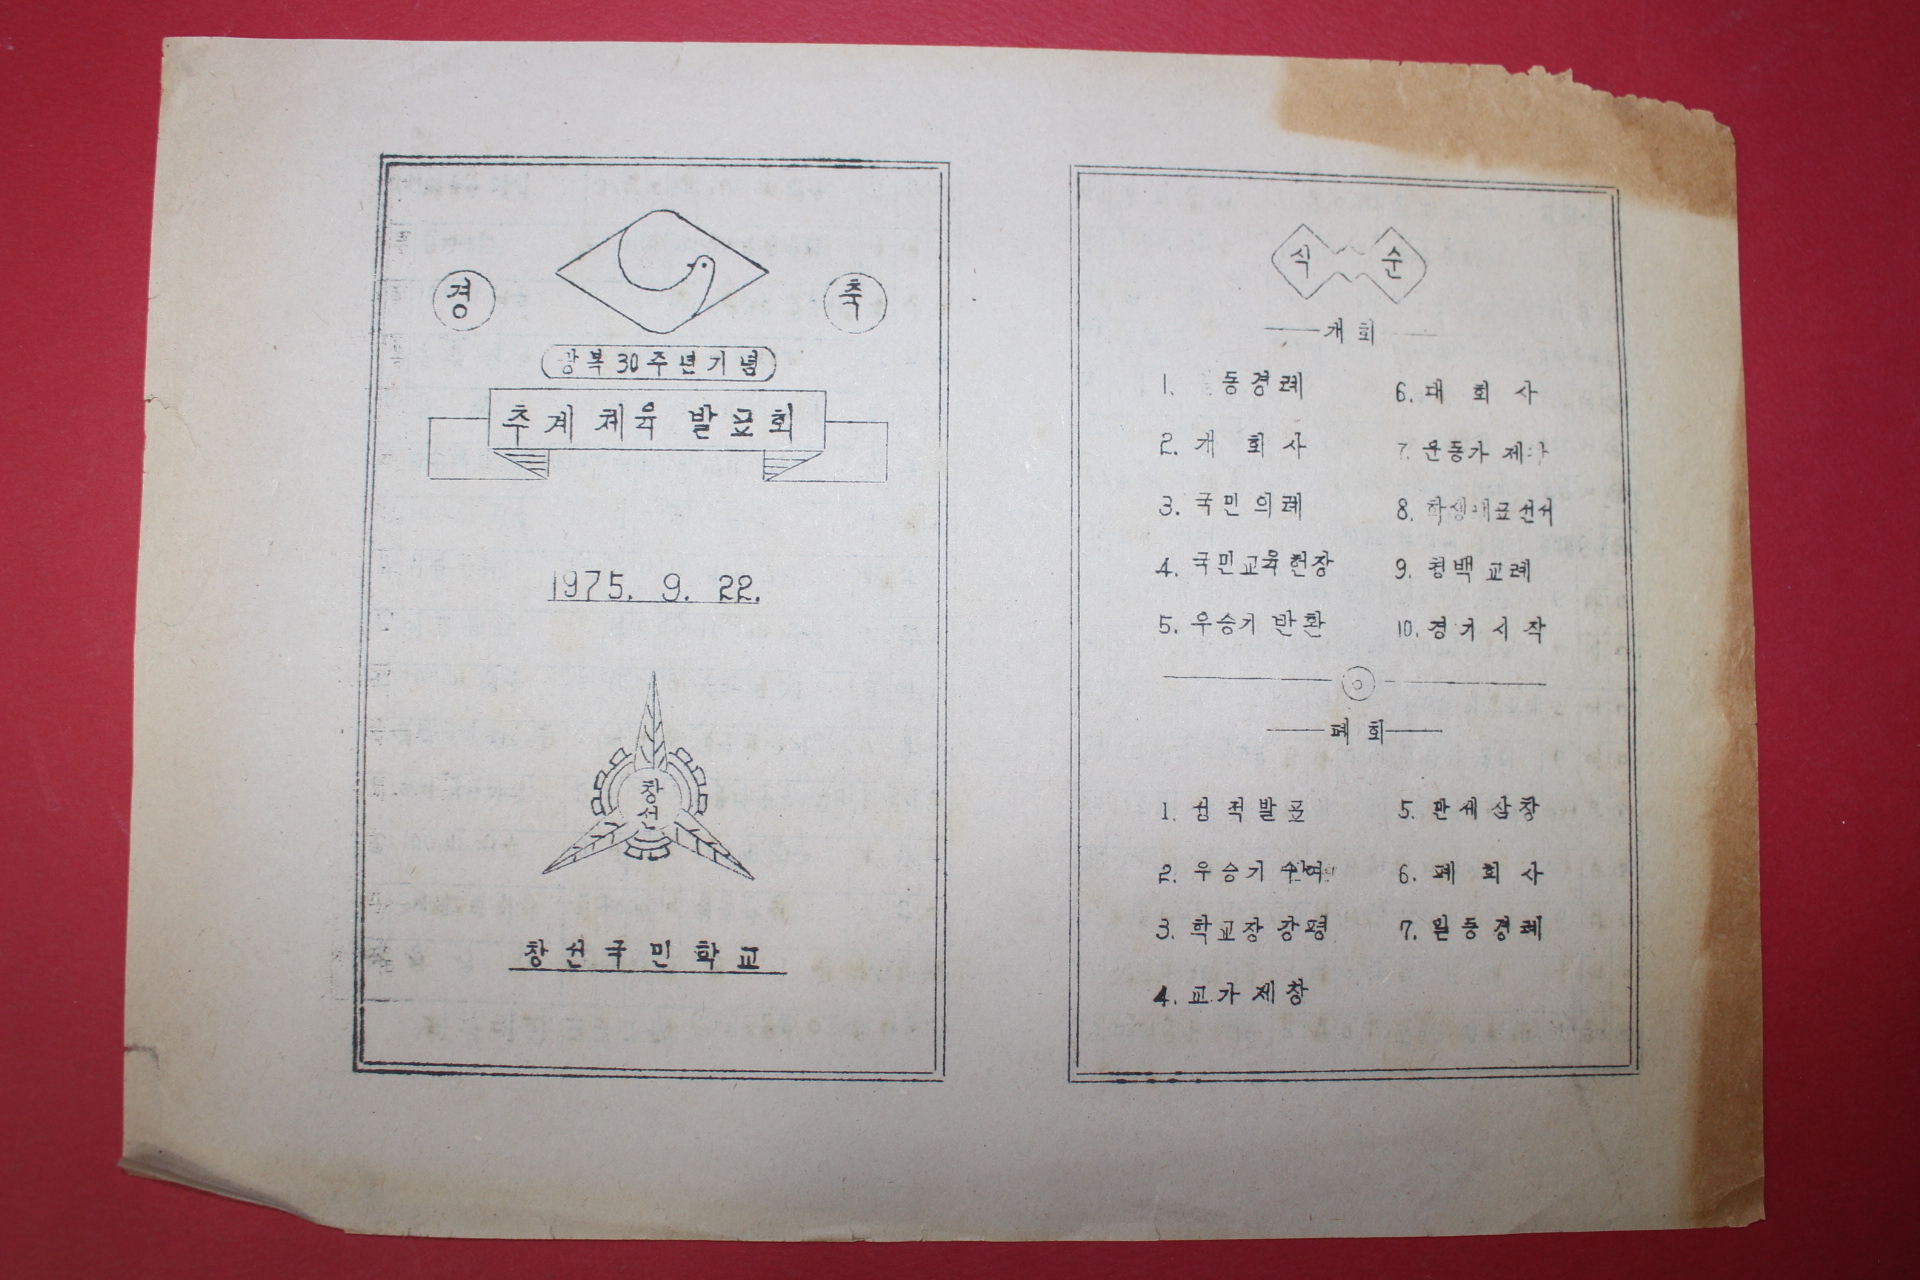 경 축
광복 30주년기념
추계 체육 발표회
1975. 9. 22.
창선
창선국민학교
식 순
개회
1. 동경례
2. 개 회 사
3. 국민의례
4. 국민교육헌장
5. 우승기 반환
6. 대 회 사
7. 운동가 제창
8. 학생대표선서
9. 청백 교례
10. 경기시작
폐회
1. 성적발표
2. 우승기 수여
3. 학교장 강평
4. 교가제창
5. 만세삼창
6. 폐 회 사
7. 일동경례